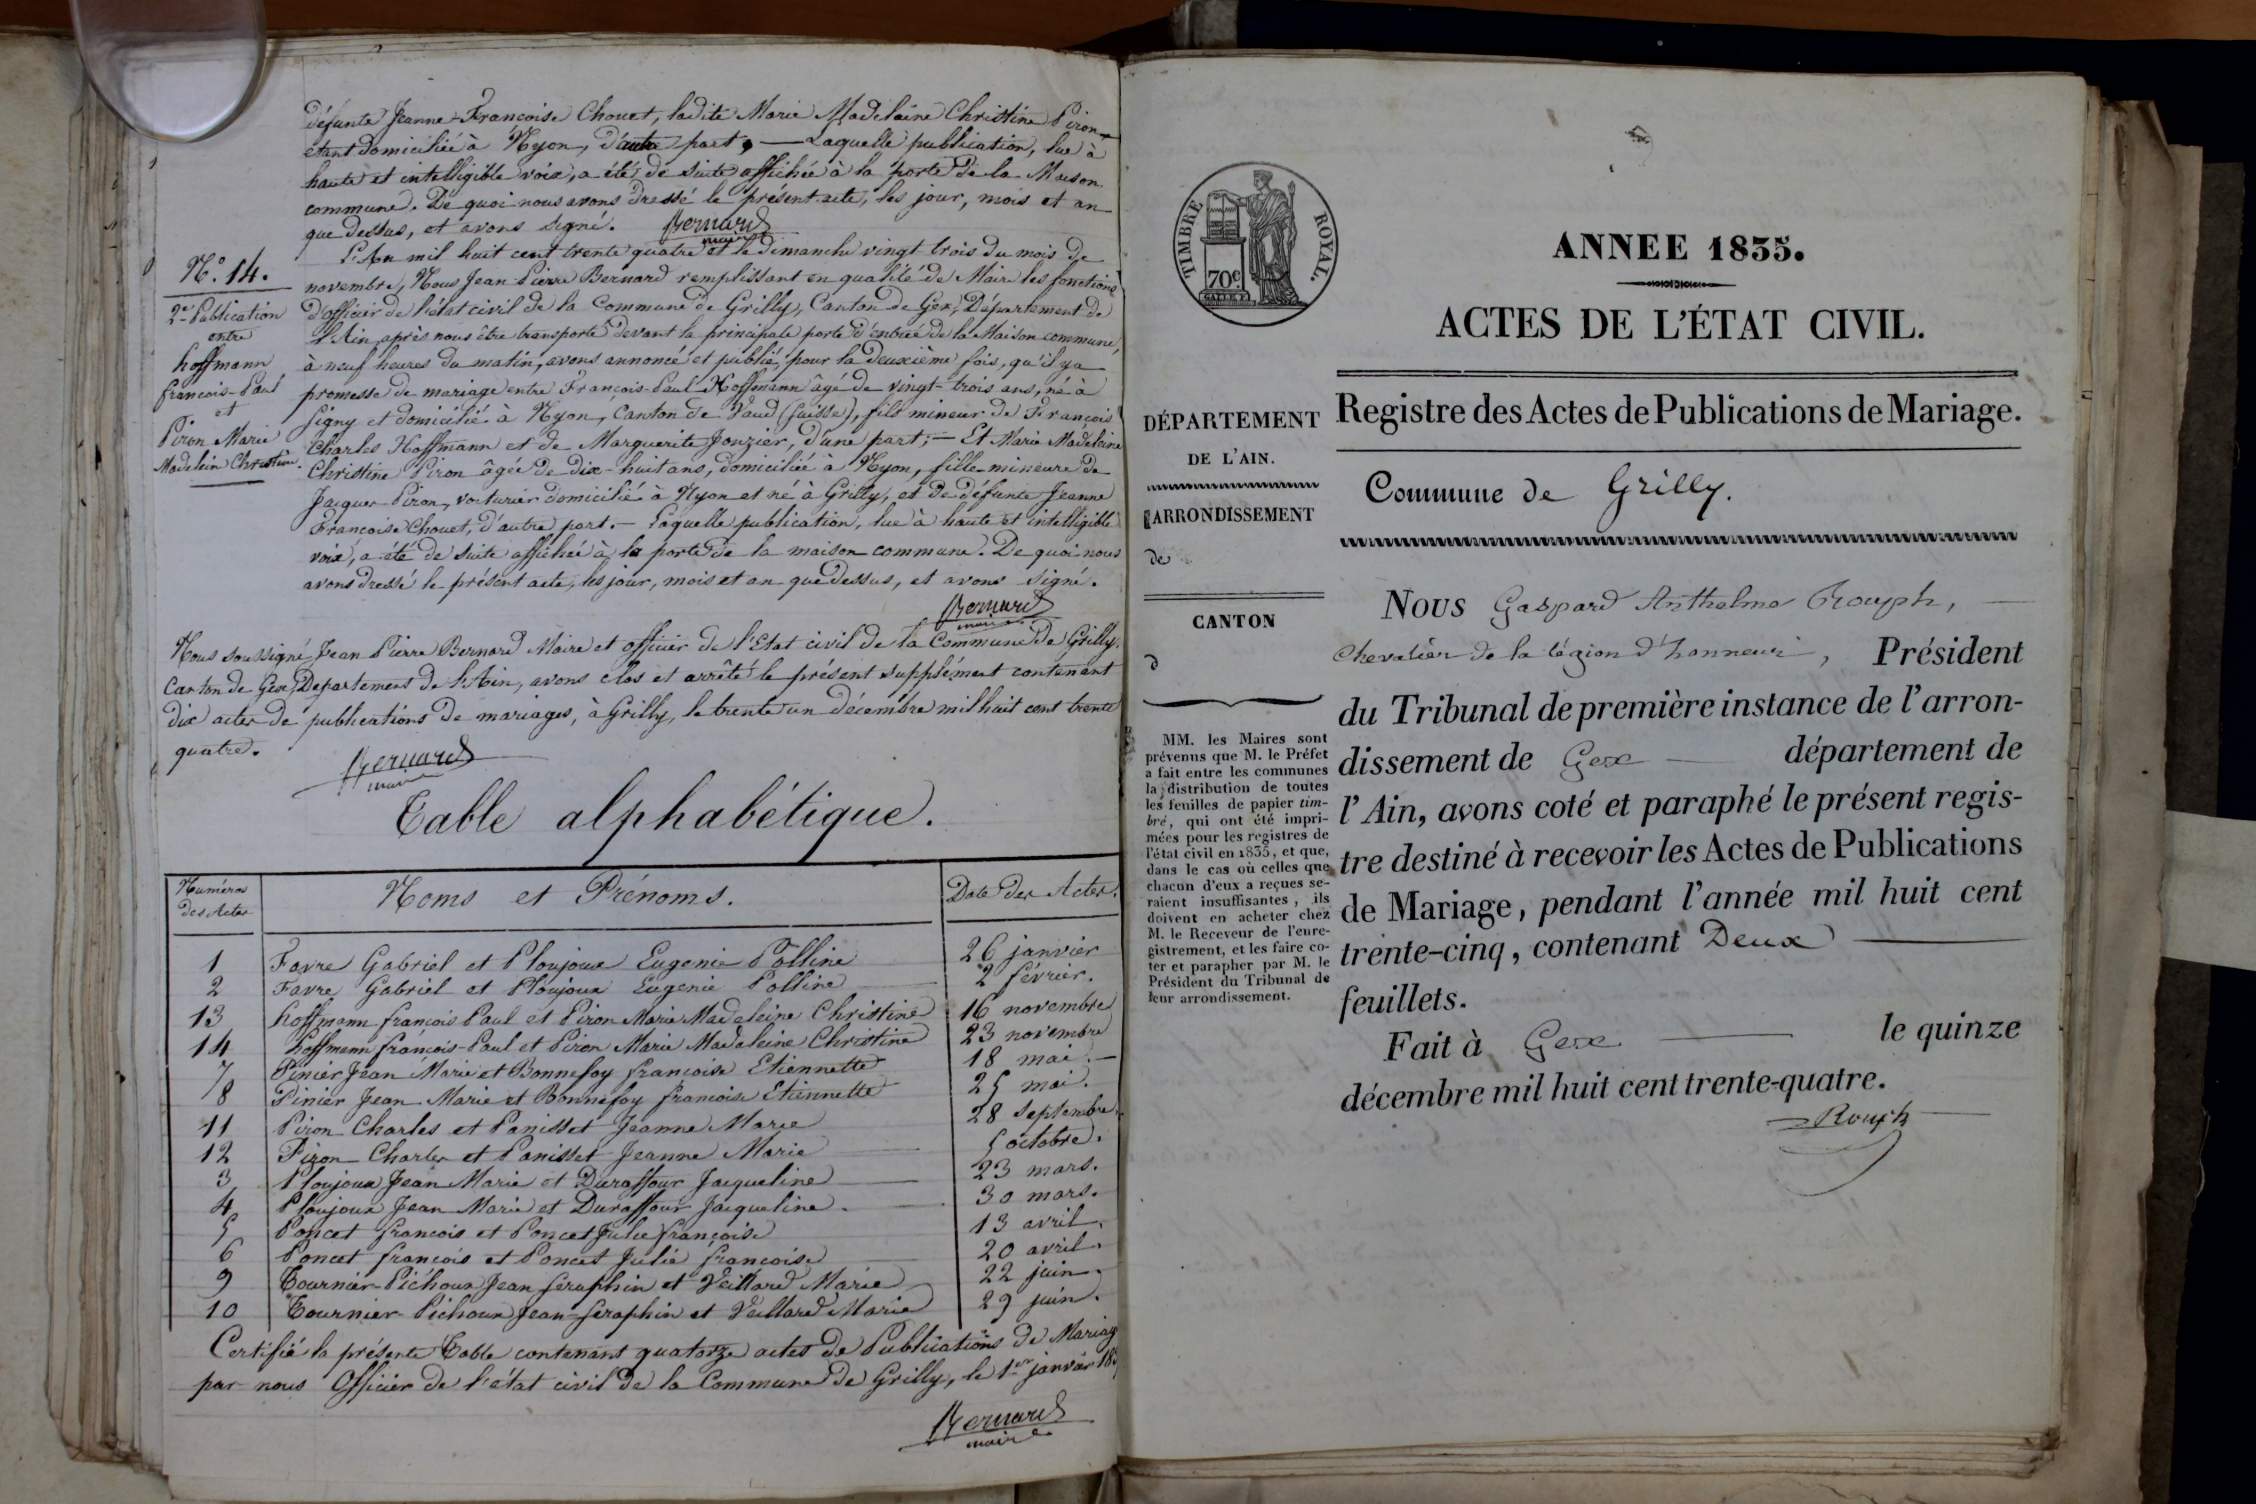 défunte Jeanne-Françoise Chouet, ladite Marie Madelaine Christine Piron
étant domiciliée à Nyon, d'autre part, — Laquelle publication, lue à
haute et intelligible voix, a été de suite affichée à la porte de la Maison
commune. De quoi nous avons dressé le présent acte, les jour, mois et an
que dessus, et avons signé. Bernard
maire
N.° 14.
2e Publication
entre
hoffmann
françois-Paul
et
Piron Marie
Madelein Christine.
L'An mil huit cent trente quatre et le dimanche vingt trois du mois de
novembre, Nous Jean Pierre Bernard remplissant en qualité de Maire les fonctions
d'officier de l'état civil de la Commune de Grilly, Canton de Gex, Département de
l'Ain, après nous être transporté devant la principale porte d'entrée de la Maison commune,
à neuf heures du matin, avons annoncé et publié, pour la deuxième fois, qu'il y a
promesse de mariage entre François-Paul Hoffmann âgé de vingt-trois ans, né à
Signy et domicilié à Nyon, Canton de Vaud (suisse), fils mineur de François
Charles Hoffmann et de Marguerite Jouzier, d'une part; — Et Marie Madeleine
Christine Piron âgée de dix-huit ans, domiciliée à Nyon, fille mineure de
Jacques Piron, voiturier domicilié à Nyon et né à Grilly, et de défunte Jeanne
Françoise Chouet, d'autre part. — Laquelle publication, lue à haute et intelligible
voix, a été de suite affichée à la porte de la maison commune. De quoi nous
avons dressé le présent acte, les jour, mois et an que dessus, et avons signé.
Bernard
maire
Nous soussigné Jean Pierre Bernard Maire et officier de l'Etat civil de la Commune de Grilly,
Canton de Gex, Département de l'Ain, avons clos et arrêté le présent supplément contenant
dix actes de publications de mariages, à Grilly, le trente un décembre mil huit cent trente
quatre.
Bernard
maire
Table alphabétique.
Numéros des Actes
Noms et Prénoms.
Date des Actes.
1 Favre Gabriel et Ploujoux Eugenie Polline 26 janvier
2 Favre Gabriel et Ploujoux Eugenie Polline 2 février.
13 hoffmann françois Paul et Piron Marie Madeleine Christine 16 novembre
14 hoffmann françois-Paul et Piron Marie Madeleine Christine 23 novembre
7 Pinier Jean Marie et Bonnefoy françoise Etiennette 18 mai. —
8 Pinier Jean Marie et Bonnefoy françoise Etiennette 25 mai.
11 Piron Charles et Panisset Jeanne Marie 28 septembre.
12 Piron Charles et Panisset Jeanne Marie 5 octobre.
3 Ploujoux Jean Marie et Duraffour Jacqueline 23 mars.
4 Ploujoux Jean Marie et Duraffour Jacqueline. 30 mars.
5 Poncet françois et Poncet Julie françoise 13 avril.
6 Poncet françois et Poncet Julie françoise 20 avril.
9 Tournier-Pichoux Jean seraphin et Veillard Marie 22 juin.
10 Tournier-Pichoux Jean-Seraphin et Veillard Marie 29 juin.
Certifié la présente Table contenant quatorze actes de Publications de Mariag
par nous Officier de l'état civil de la Commune de Grilly, le 1er janvier 183
Bernard
maire
TIMBRE ROYAL.
70c
ANNEE 1835.
ACTES DE L'ÉTAT CIVIL.
DÉPARTEMENT
DE L'AIN.
ARRONDISSEMENT
de
CANTON
d
MM. les Maires sont
prévenus que M. le Préfet
a fait entre les communes
la distribution de toutes
les feuilles de papier tim-
bré, qui ont été impri-
mées pour les registres de
l'état civil en 1835, et que,
dans le cas où celles que
chacun d'eux a reçues se-
raient insuffisantes, ils
doivent en acheter chez
M. le Receveur de l'enre-
gistrement, et les faire co-
ter et parapher par M. le
Président du Tribunal de
leur arrondissement.
Registre des Actes de Publications de Mariage.
Commune de Grilly.
Nous Gaspard Anthelme Rouph, —
Chevalier de la légion d'honneur, Président
du Tribunal de première instance de l'arron-
dissement de Gex — département de
l'Ain, avons coté et paraphé le présent regis-
tre destiné à recevoir les Actes de Publications
de Mariage, pendant l'année mil huit cent
trente-cinq, contenant Deux —
feuillets.
Fait à Gex — le quinze
décembre mil huit cent trente-quatre.
Rouph